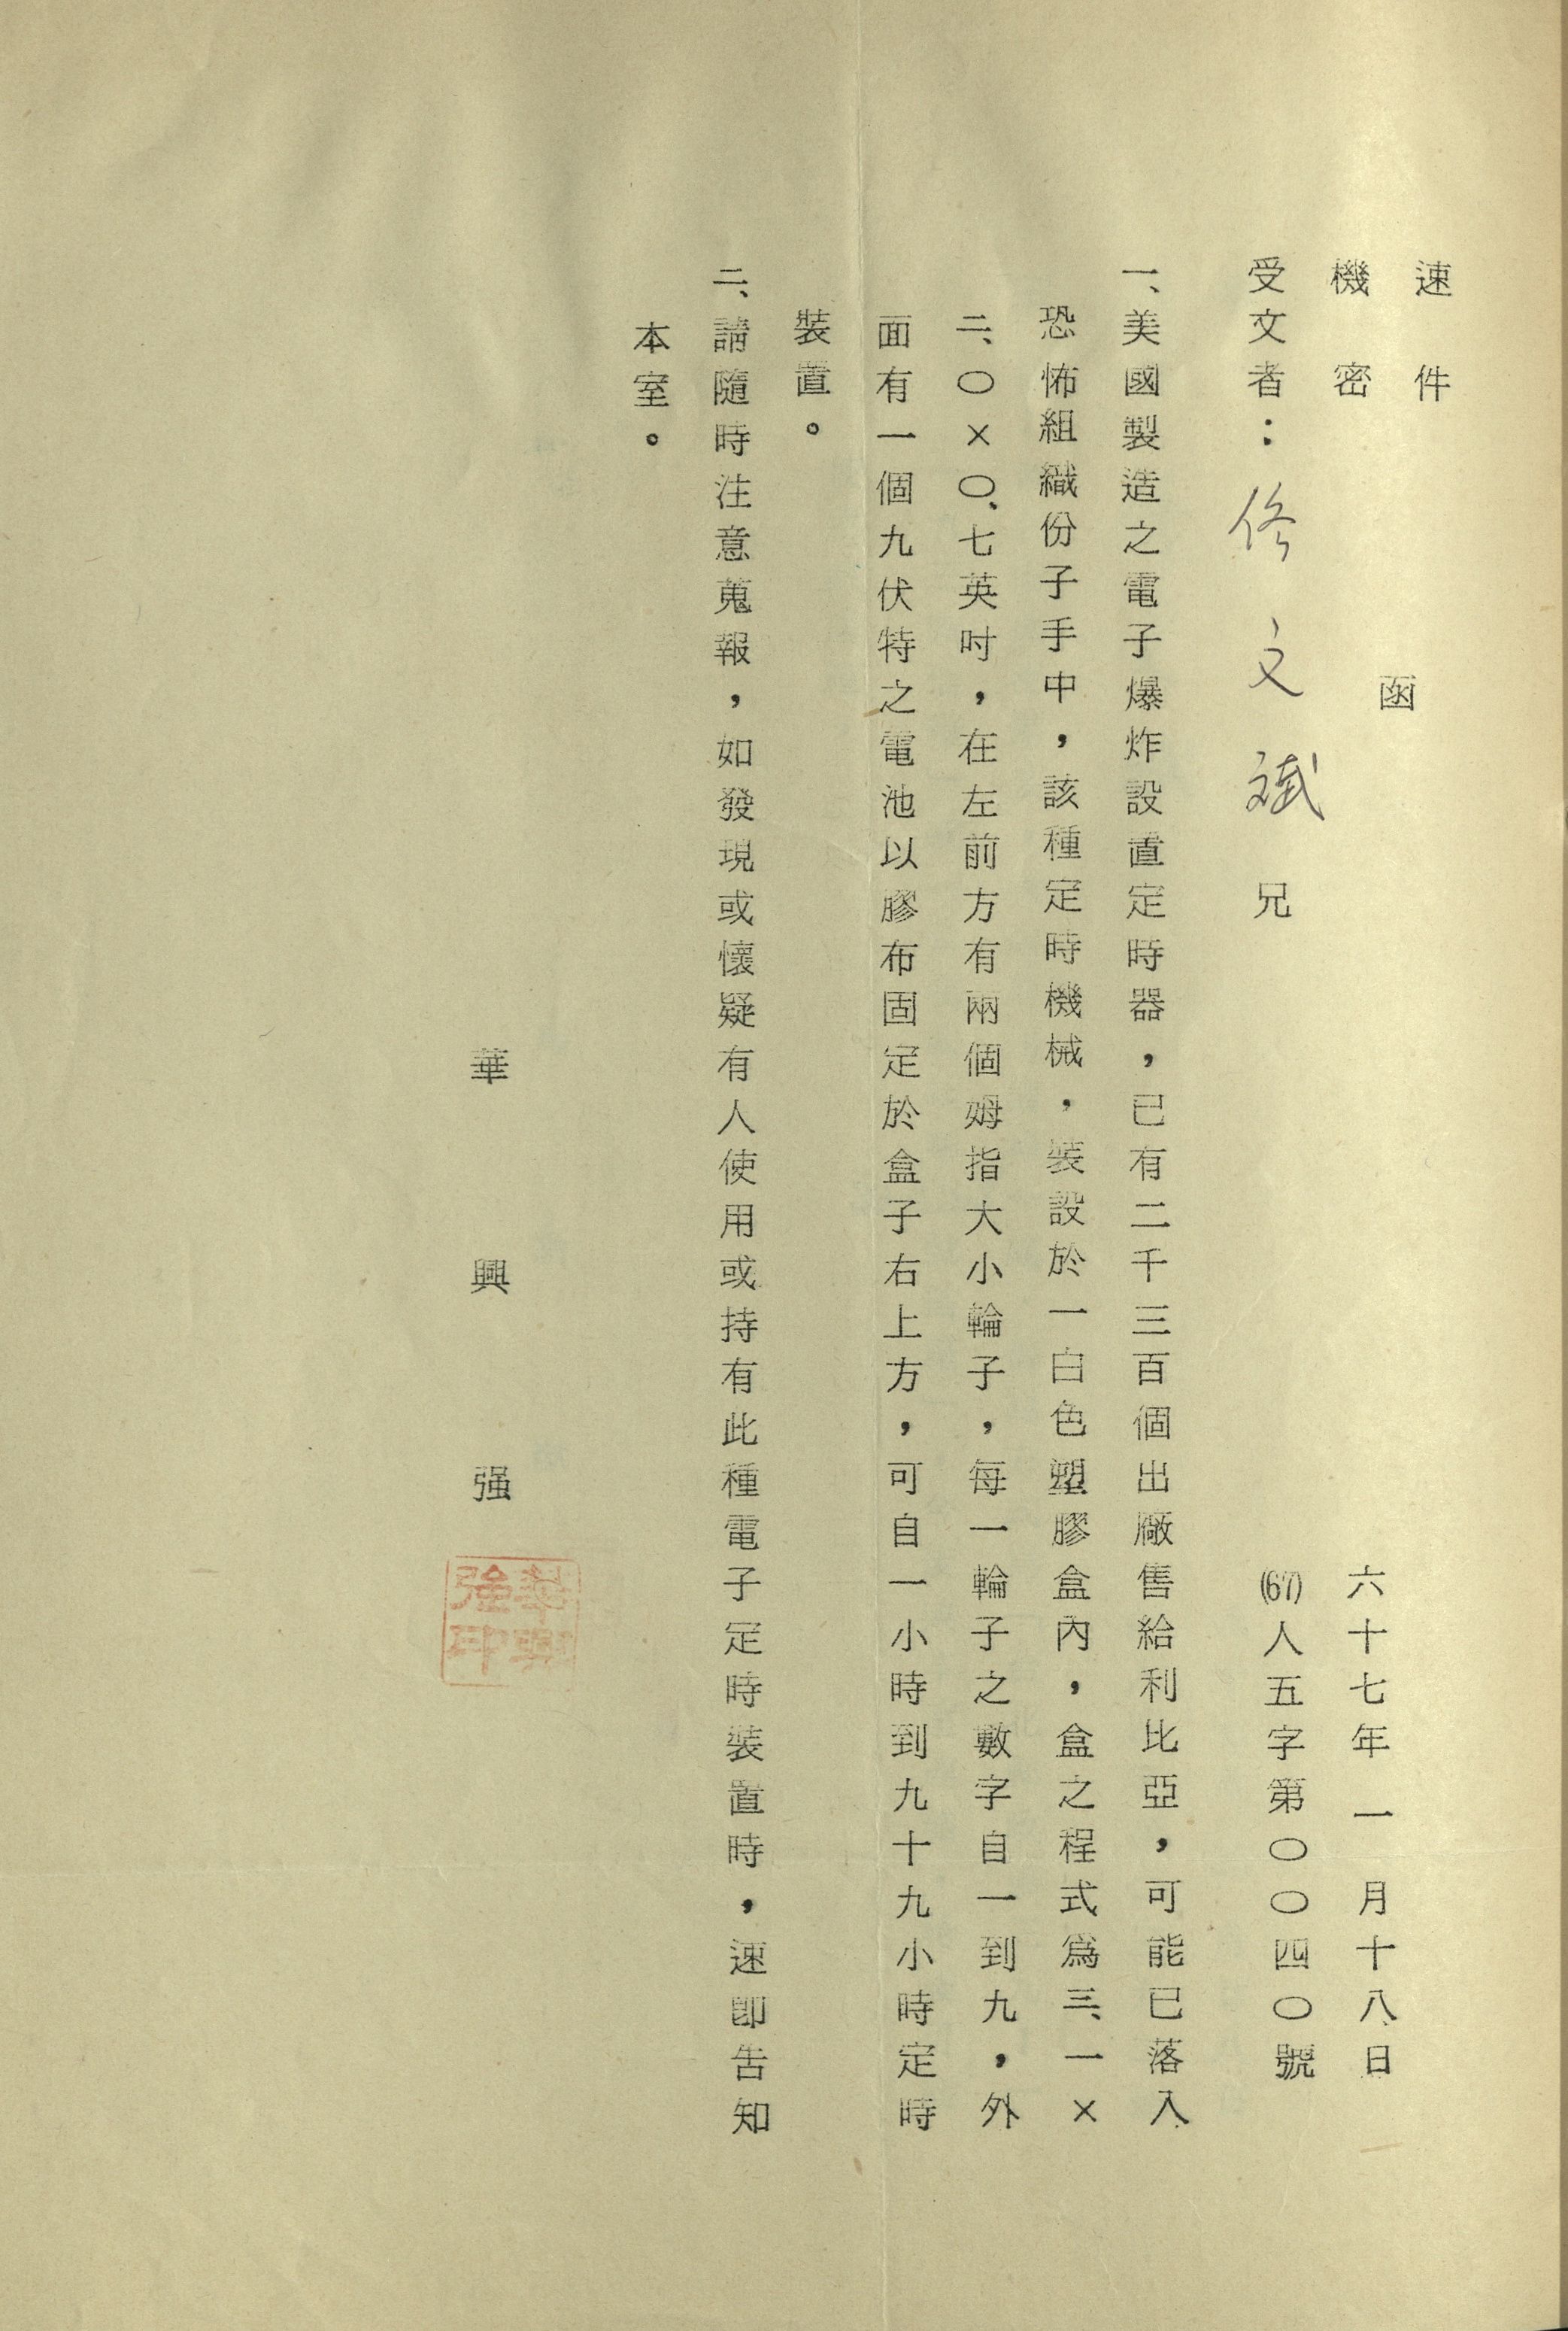 速件
機密
函
六十七年一月十八日
(67)人五字第〇〇四〇號
受文者：佟文斌兄
一、美國製造之電子爆炸設置定時器，已有二千三百個出廠售給利比亞，可能已落入
恐怖組織份子手中，該種定時機械，裝設於一白色塑膠盒內，盒之程式爲三、一×
二、〇×〇、七英吋，在左前方有兩個姆指大小輪子，每一輪子之數字自一到九，外
面有一個九伏特之電池以膠布固定於盒子右上方，可自一小時到九十九小時定時
裝置。
二、請隨時注意蒐報，如發現或懷疑有人使用或持有此種電子定時裝置時，速卽告知
本室。
華興强
華興強印